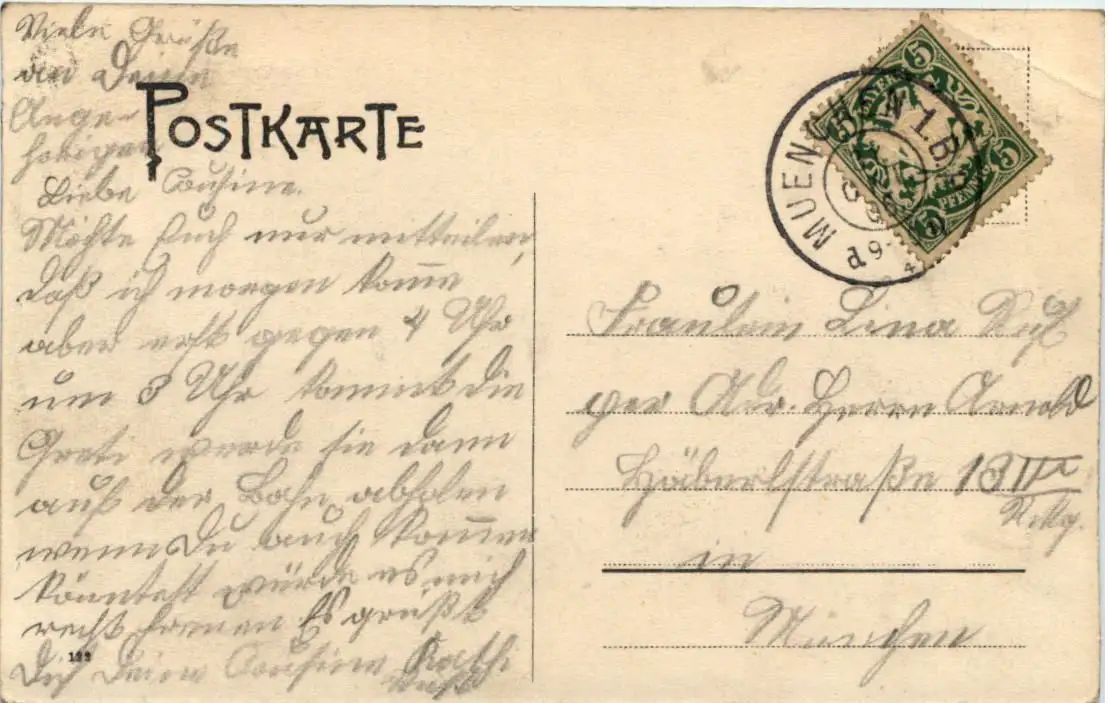 Viele Grüße
an Deine
Ange-
hörigen
POSTKARTE
Liebe Cousine.
Möchte Euch nur mitteilen,
daß ich morgen komme
aber erst gegen 4 Uhr
um 3 Uhr kommt die
Greti werde sie dann
auf der Bahn abholen
wenn Du auch kommen
könntest würde es mich
recht freuen Es grüßt
Dich Deine Cousine Kathi
122
MUENCHEN 1. B.P.
5
5
5
5
BAYERN
PFENNIG
Fräulein Lina
per Adr. Herrn Arnold
Häberlstraße 13 III
Rckg.
in
München